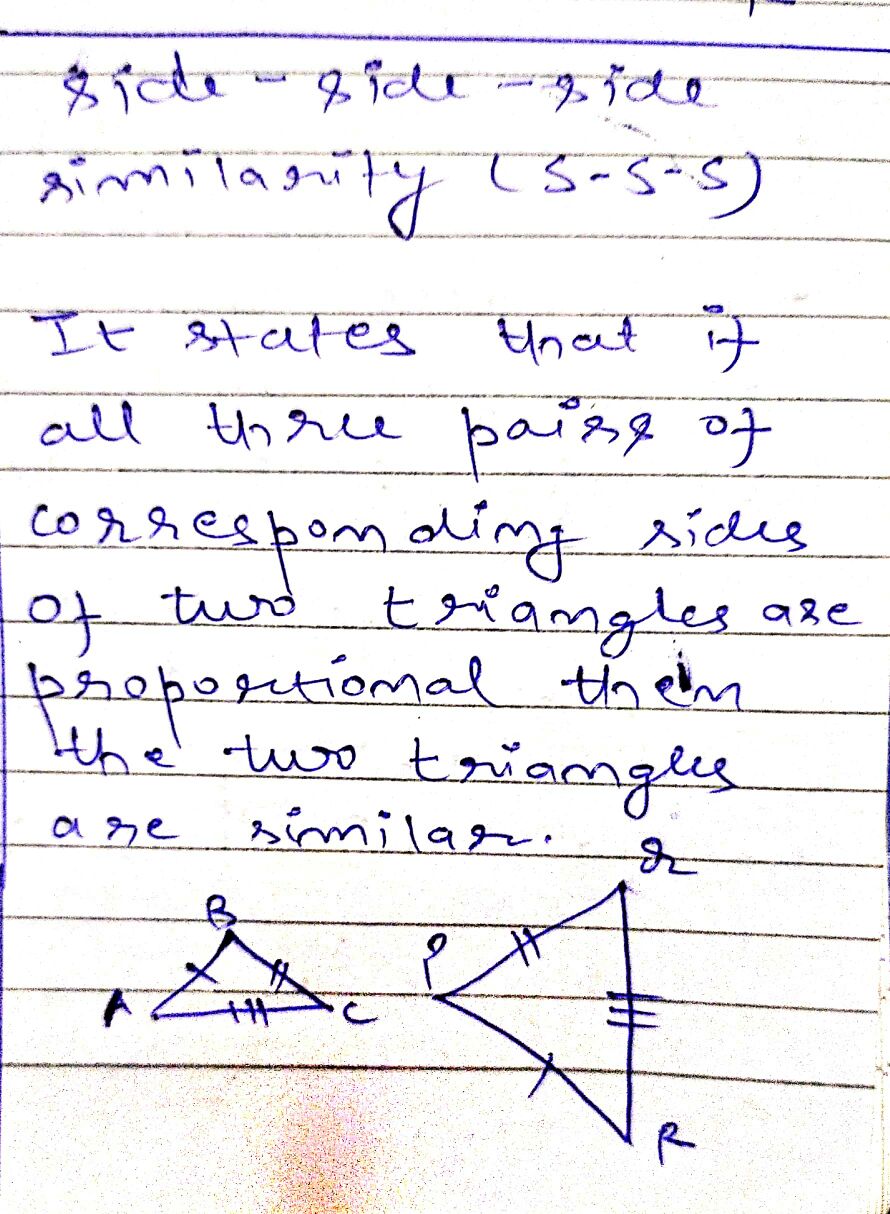 side - side - side
similarity (S-S-S)
It states that if
all three pairs of
corresponding sides
of two triangles are
proportional then
the two triangles
are similar.
B
A
C
P
Q
R